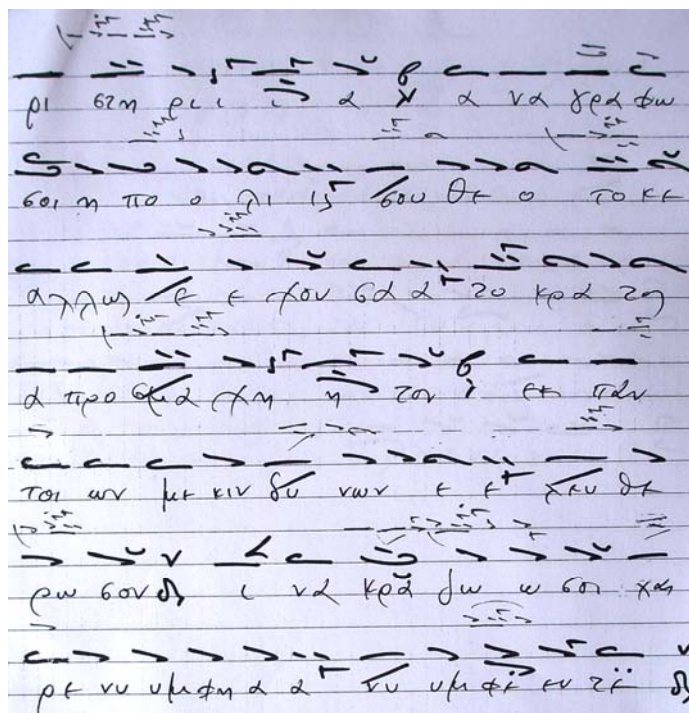 ρι στη ρι ι ι α α να γρα φω
σοι η πο ο λι ις σου θε ο το κε
αλλως ε ε χου σα α το κρα τος
α προ σμα χη η τον εκ παν
τοι ων με κιν δυ νων ε ε λευ θε
ρω σον ι να κρα ζω ω σοι χαι
ρε νυ υμ φη α α νυ υμ φε ευ τε